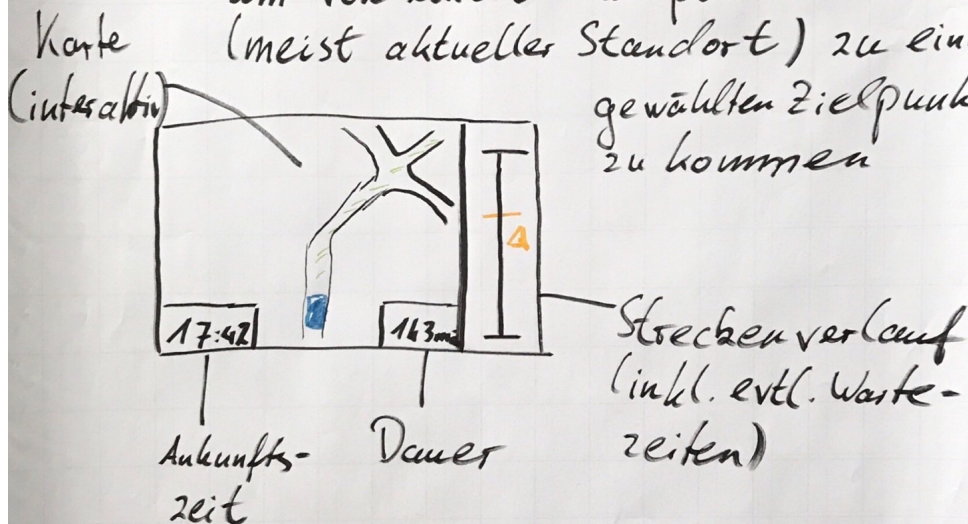 Karte
(interaktiv)
(meist aktueller Standort) zu ein
gewählten Zielpunk
zu kommen
17:42
143min
Streckenverlauf
(inkl. evtl. Warte-
zeiten)
Ankunfts-
zeit
Dauer